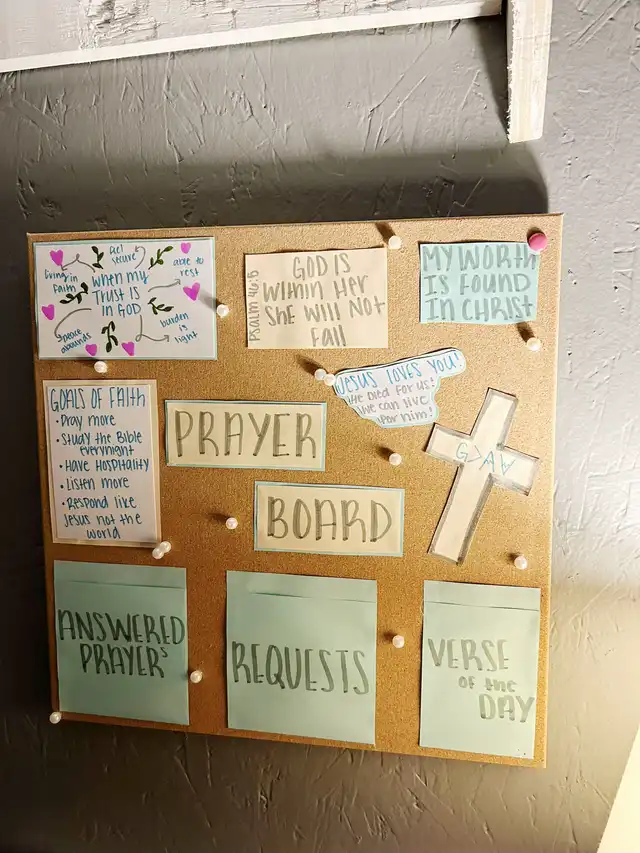 feel secure
able to rest
burden is light
peace abounds
living in faith
When my
Trust is
in GOD
Psalm 46:5
GOD IS
Within Her
She Will Not
Fall
MY WORTH
IS FOUND
IN CHRIST
JESUS LOVES YOU!
He Died for us!
We can live
for him!
GOALS OF FAITH
• Pray more
• Study the Bible
everynight
• Have Hospitality
• Listen more
• Respond like
Jesus not the
world
PRAYER
BOARD
G>∧∨
ANSWERED
PRAYERS
REQUESTS
VERSE
OF the
DAY